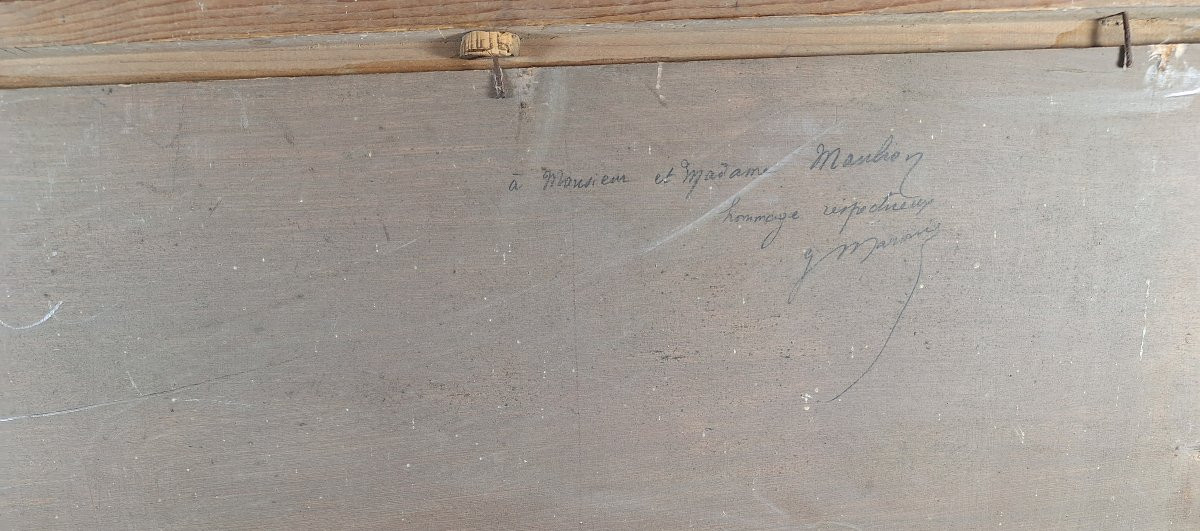 à Monsieur et Madame Maubron
hommage respectueux
g Maronis